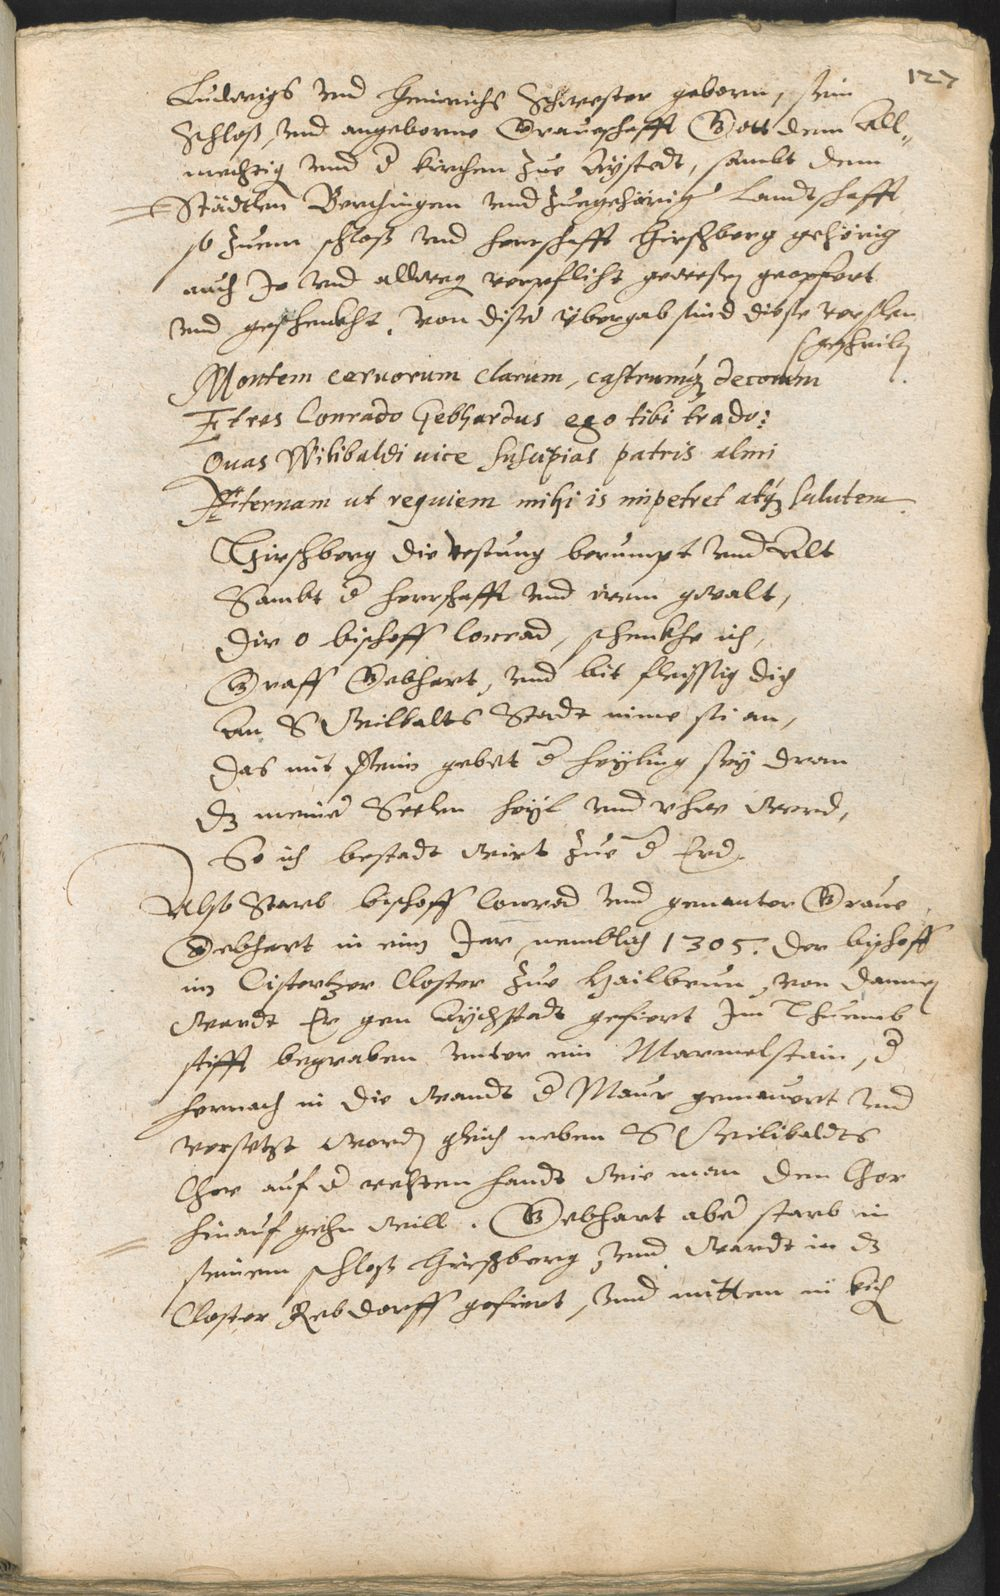 127
Ludwigs vnd Heinrichs Schwester geborn, sein
Schloß vnd angeborne Graueschafft Gott dem All„
mechtig vnd d kirchen zue Eystedt, sambt dem
Städtlen Berchingen vnd zuegehörig Landtschafft
so zuem schloß vnd herrschafft Hirschberg gehörig
auch Je vnd allweg verpflicht gewesen geopfert
vnd geschenckht. Von diser übergab sind diese verslen
geschriben
Montem ceruorum clarum, castrumq decorum
Et res Conrado Gebhardus ego tibi trado:
Quas Wilibaldi uice suscipias patris almi
Æternam ut requiem mihi is impetret atq salutem.
Hirschberg die vestung berumpt vnd Alt
Sambt d herrschafft vnd irem gwalt,
Dir o bischoff Conrad, schenckhe ich,
Graff Gebhart, vnd bit fleissig dich
An S Wilbalts Stadt nime sie an,
Das mit seim gebet d heyling sey dran
Dz meiner Seelen heyl vnd rhue Werd,
So ich bestadt Wirt zue d Erd.
Also Starb bischoff Conrad vnd genanter Graue
Gebhart in eim Jar nemblich 1305. Der bischoff
im Cistertzer Closter zue Hailbrun, von dannen
Wardt Er gen Eychstadt gefiert Im Thuemb
stifft begraben vnter ein Marmelstain, d
hernach in die Wandt d Maur gemauert vnd
versetzt Worden gleich neben S Wilibaldts
Chor auf d rechten handt Wie man den Chor
hinauf gehn Will. Gebhart aber starb in
seinem schloß Hirschberg, vnd Wardt in dz
Closter Rebdorff gefiert, vnd mitten in